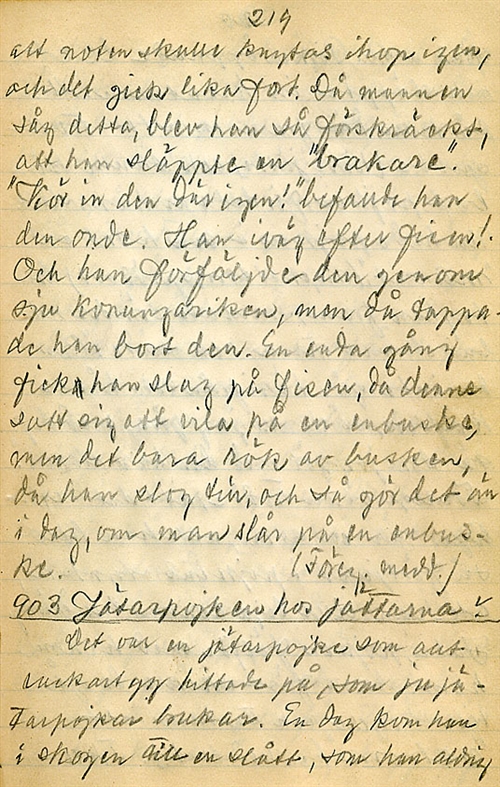 219
att noten skulle knytas ihop igen,
och det gick lika fort. Då mannen
såg detta, blev han så förskräckt,
att han släppte en "brakare".
"Kör in den där igen!" befallde han
den onde. Han iväg efter fisen!
Och han förföljde den genom
sju konungariken, men då tappa-
de han bort den. En enda gång
fick han slag på fisen, då denne
satt sig att vila på en enbuske,
men det bara rök av busken,
då han slog till, och så gör det än
i dag, om man slår på en enbus-
ke. (Föreg. medd.)
903 Jätarpojken hos jättarna
Det var en jätarpojke som allt
hittade på, som ju jä-
tarpojkar brukar. En dag kom han
i skogen till en slått, som han aldrig